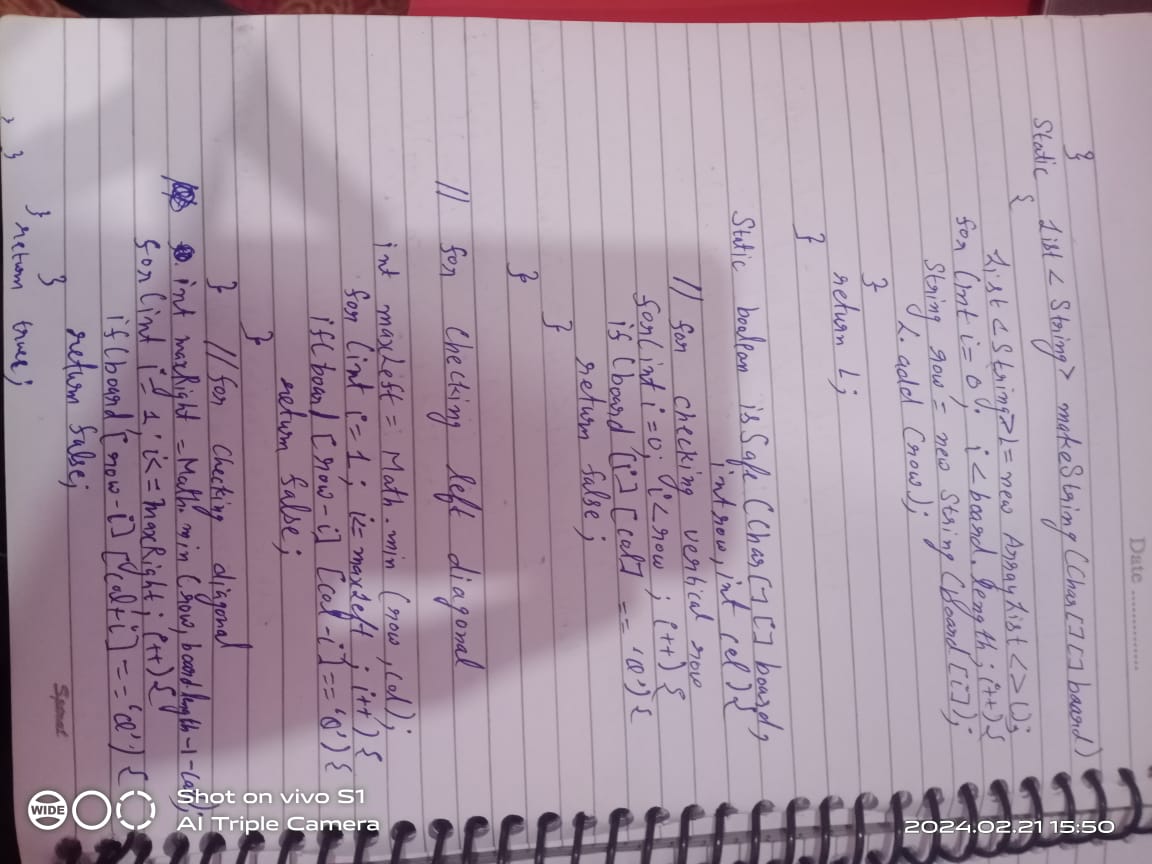 Date ..............
}
Static List < String > makeString (Char [] [] board)
{
List < String > L = new ArrayList < > ();
for (int i = 0; i < board. length; i++) {
String row = new String (board [i]);
L. add (row);
}
return L;
}
Static boolean isSafe (Char [] [] board,
int row, int col) {
// for checking vertical row
for (int i = 0; i < row; i++) {
if (board [i] [col] == 'Q') {
return false;
}
}
// for checking left diagonal
int maxLeft = Math. min (row, col);
for (int i = 1; i <= maxLeft; i++) {
if (board [row - i] [col - i] == 'Q') {
return false;
}
} // for checking diagonal
int maxRight = Math. min (row, board.length - 1 - col);
for (int i = 1; i <= maxRight; i++) {
if (board [row - i] [col + i] == 'Q') {
return false;
}
} return true;
}
}
Spiral
WIDE
Shot on vivo S1
AI Triple Camera
2024.02.21 15:50